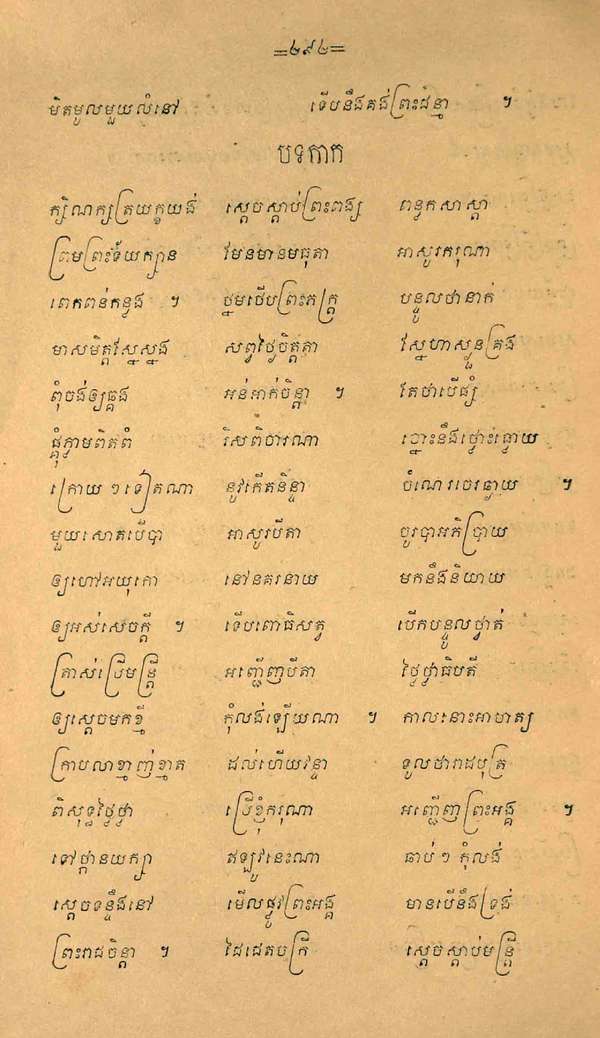 =៤៩៤=
មិតមូលមួយលំនៅ ទើបនឹងគង់ព្រះជន្មា ។
បទកាក
ក្សិណក្សត្រយក្ខយង់ ស្ដេចស្ដាប់ព្រះពង្ស ពន្ធុកសាស្ដា
ព្រមព្រះទ័យក្សាន វែមនមានមធុតា អាសូរករុណា
ពេកពន់កន្លង ។ ថ្នមថើបព្រះភក្ត្រ បន្ទូលថានាក់
មាសមិត្តស្នែស្នង សព្វថ្ងៃចិត្តតា ស្នែហាស្ងួនគ្រង
ពុំចង់ឲ្យឆ្គង អន់អាក់ចិន្ដា ។ តែថាបើផ្សំ
ផ្គុំភ្ងាមពិតពំ រិសពិចារណា ឈ្នោះនឹងថ្មោះធ្វោយ
ក្រោយ ៗ ទៀតណា នូវកើតនិន្ទា ចំណេរចេរឆ្លាយ ។
មួយសោតបើបា អាសូរបីតា ចូរបាអភិប្រាយ
ឲ្យហៅអយុកោ នៅនគរនាយ មកនឹងនិយាយ
ឲ្យអស់សេចក្ដី ។ ទើបពោធិសត្វ បើកបន្ទូលថ្វាត់
ត្រាស់ប្រើមន្ត្រី អញ្ជើញបីតា ថ្ងៃថ្លាធិបតី
ឲ្យស្ដេចមកខ្មី កុំលង់ឡើយណា ។ កាលនោះអាមាត្យ
ក្រាបលាខ្មាញ់ខ្មាត ដល់ហើយវន្ទា ទូលថារាជបុត្រ
ពិសុទ្ធថ្ងៃថ្លា ប្រើខ្ញុំករុណា អញ្ជើញព្រះអង្គ ។
ទៅថ្កានយក្សា ឥឡូវនេះណា ឆាប់ ៗ កុំលង់
ស្ដេចទន្ទឹងនៅ មើលផ្លូវព្រះអង្គ មានបើនឹងទ្រង់
ព្រះរាជចិន្ដា ។ ដៃដេតបក្រី ស្ដេចស្ដាប់មន្ត្រី